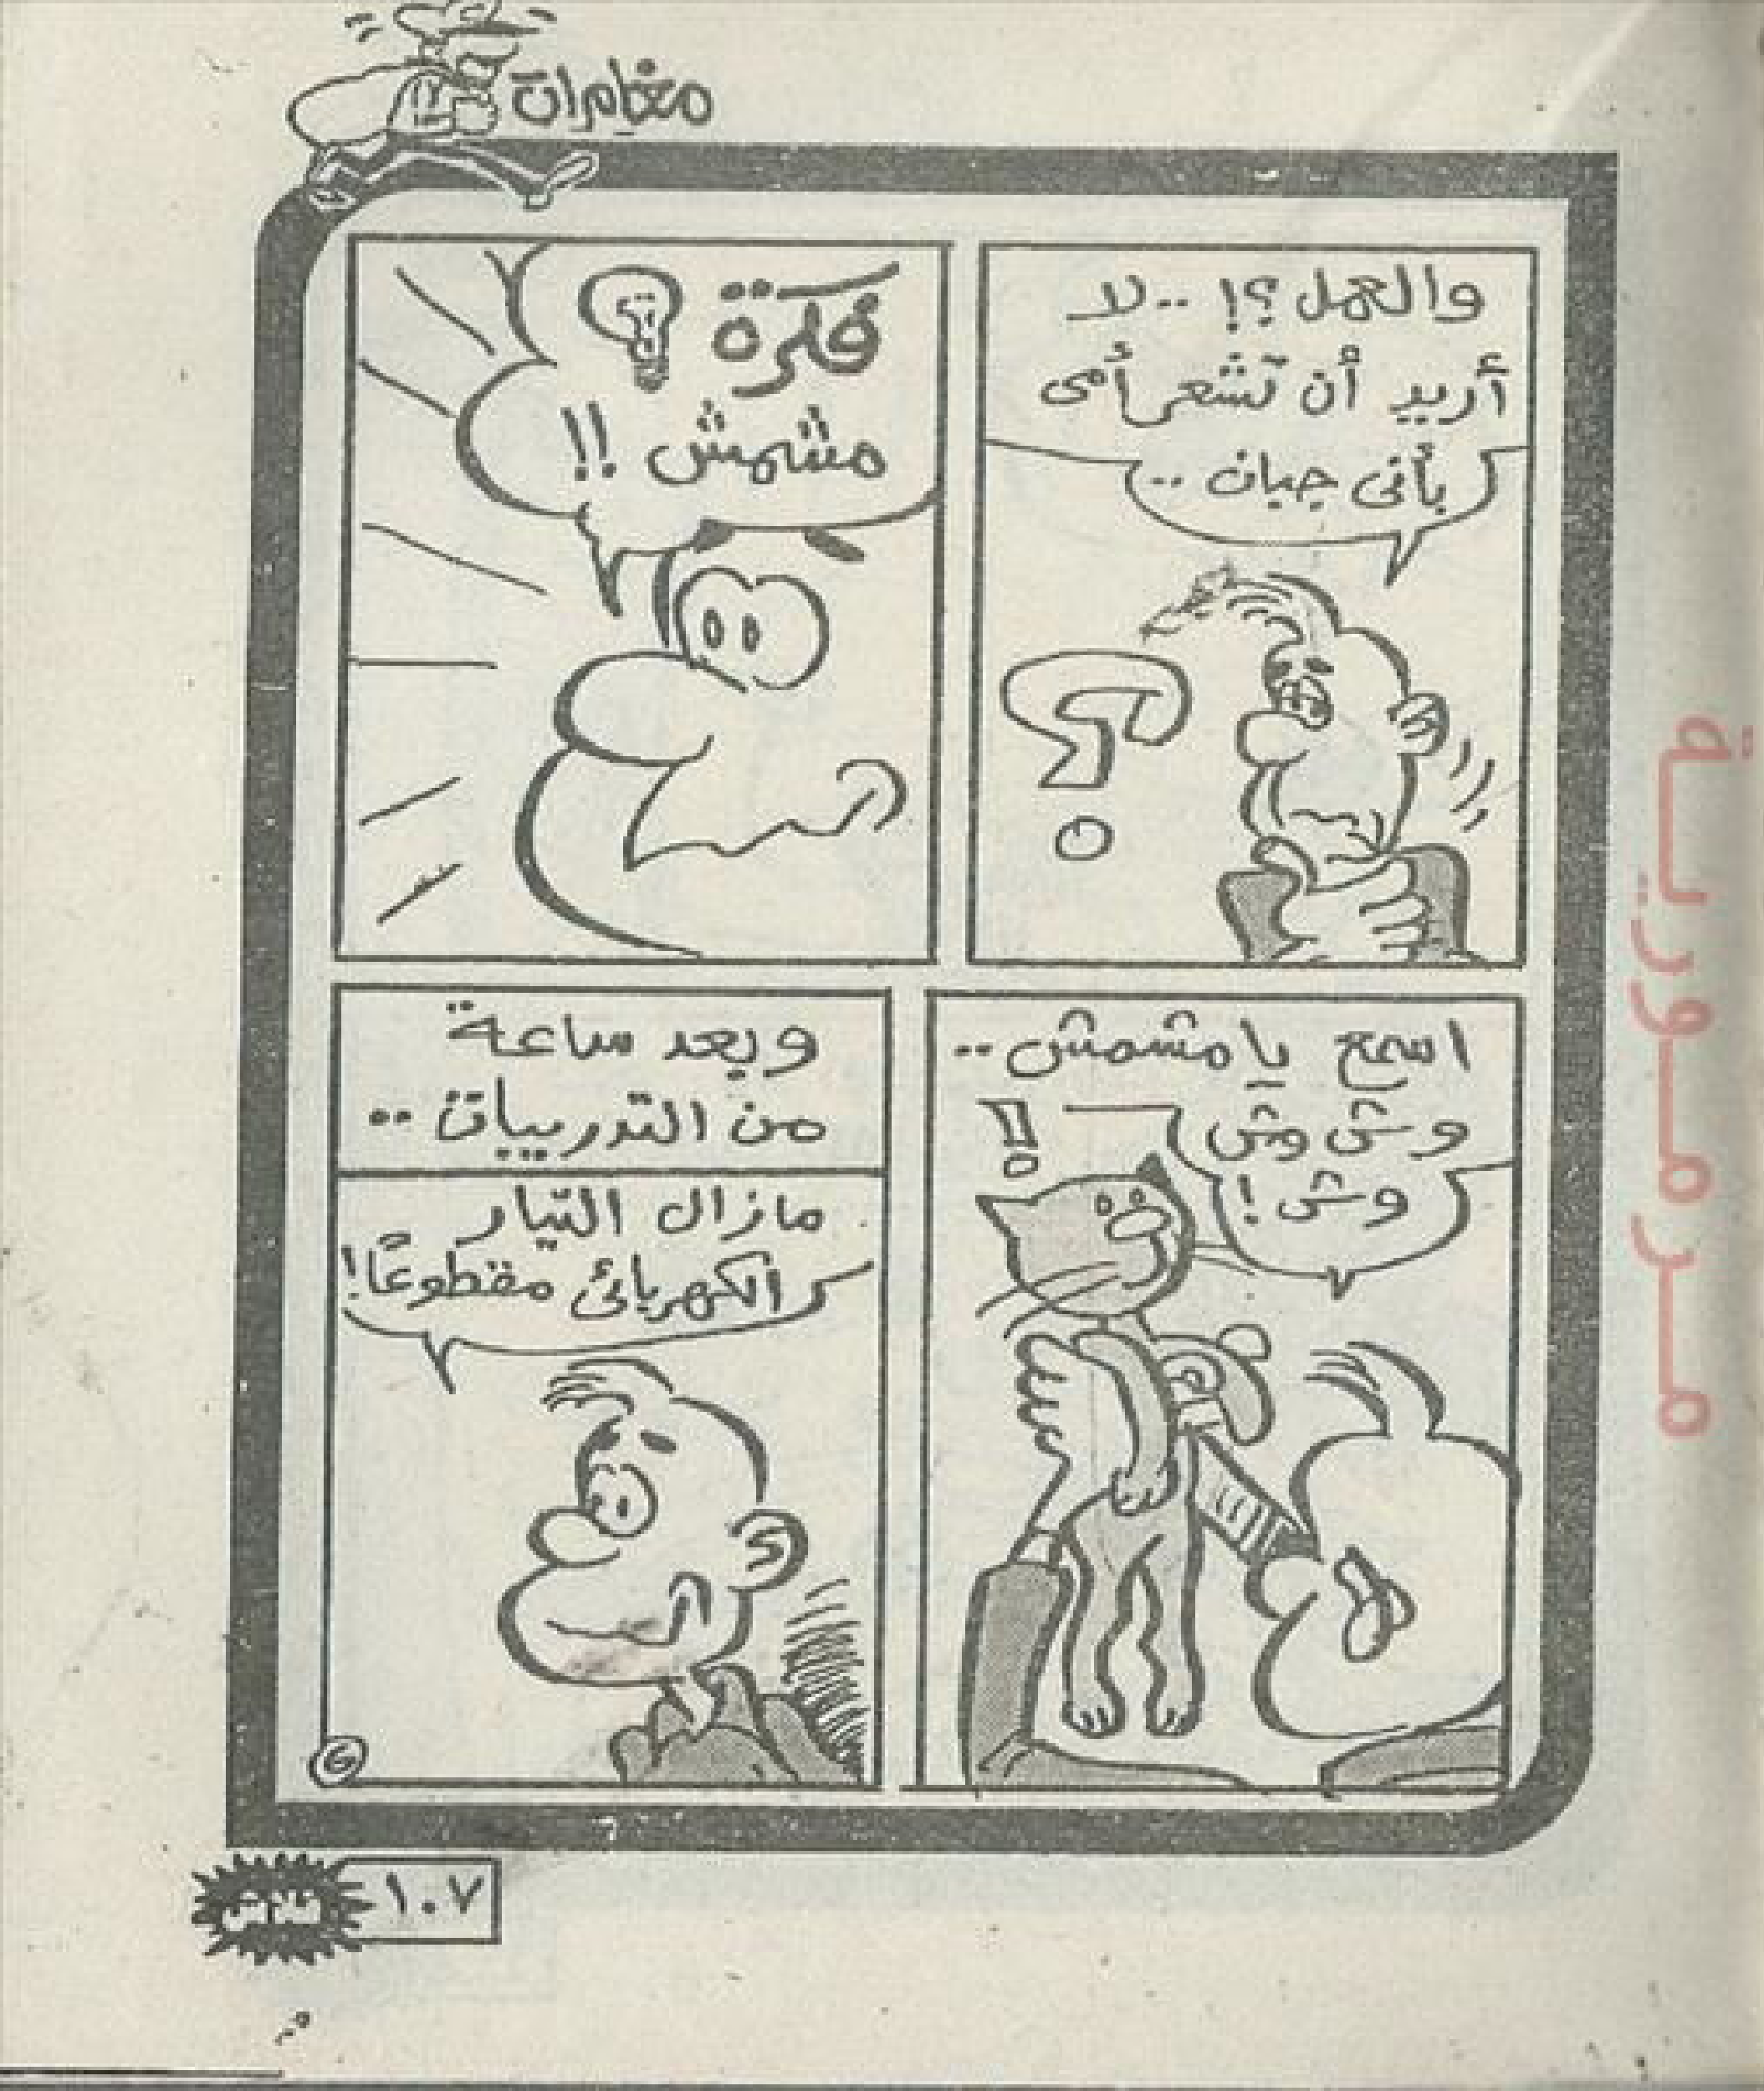 مغامرات
والعمل ؟! .. لا
أريد أن تشعر أمى
بأنى جبان ..
فكرة
مشمش !!
اسمع يا مشمش ..
وش وش
وش !
وبعد ساعة
من التدريبات ..
مازال التيار
الكهربائى مقطوعًا!
6
١٠٧
فلاش
مرمورية